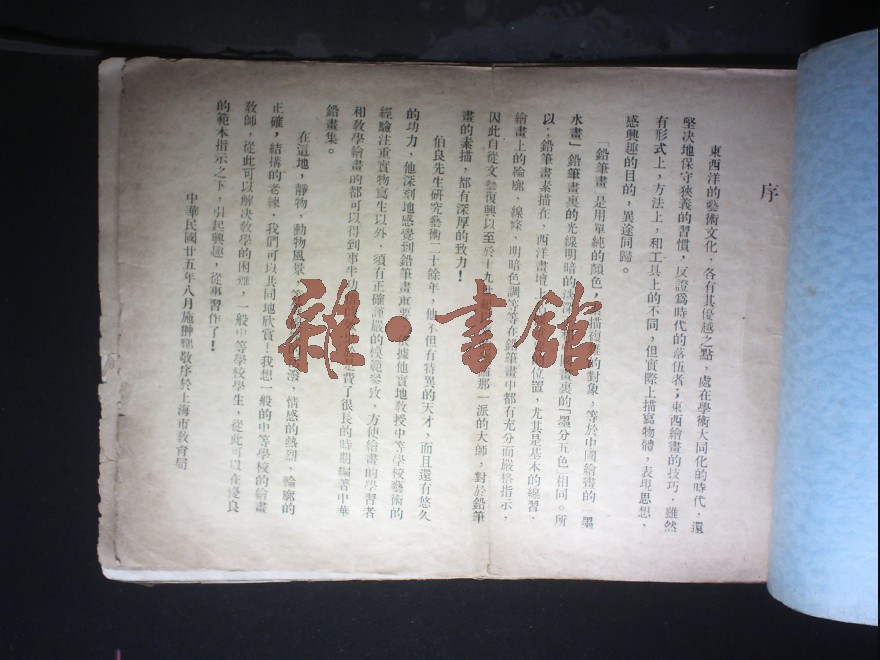 序
東西洋的藝術文化，各有其優越之點，處在學術大同化的時代，還
堅决地保守狹義的習慣，反證爲時代的落伍者；東西繪畫的技巧，雖然
有形式上，方法上，和工具上的不同，但實際上描寫物體，表現思想，
感興趣的目的，異途同歸。
「鉛筆畫」是用單純的顏色，描復雜的對象，等於中國繪畫的「墨
水畫」鉛筆畫裏的光線明暗的 畫裏的「墨分五色」相同。所
以，鉛筆畫素描在，西洋畫壇上 位置，尤其是基本的練習，
繪畫上的輪廓，線條，明暗色調等等在鉛筆畫中都有充分而嚴格指示，
因此自從文藝復興以至於十九世 那一派的大師，對於鉛筆
畫的素描，都有深厚的致力！
伯良先生研究藝術二十餘年，他不但有特異的天才，而且還有悠久
的功力，他深刻地感覺到鉛筆畫重要 據他實地教授中等學校藝術的
經驗注重實物寫生以外，須有正確謹嚴的模範參攷，方使繪畫的學習者
和教學繪畫的都可以得到事半功 費了很長的時期編著中華
鉛畫集。
在這地，靜物，動物風景 等 潑，情感的熱烈，輪廓的
正確，結搆的老練，我們可以共同地欣賞！我想一般的中等學校的繪畫
教師，從此可以解决教學的困難，一般中等學校學生，從此可以在優良
的範本指示之下，引起興趣，從事習作了！
中華民國廿五年八月施翀鵬敬序於上海市教育局
雜·書館